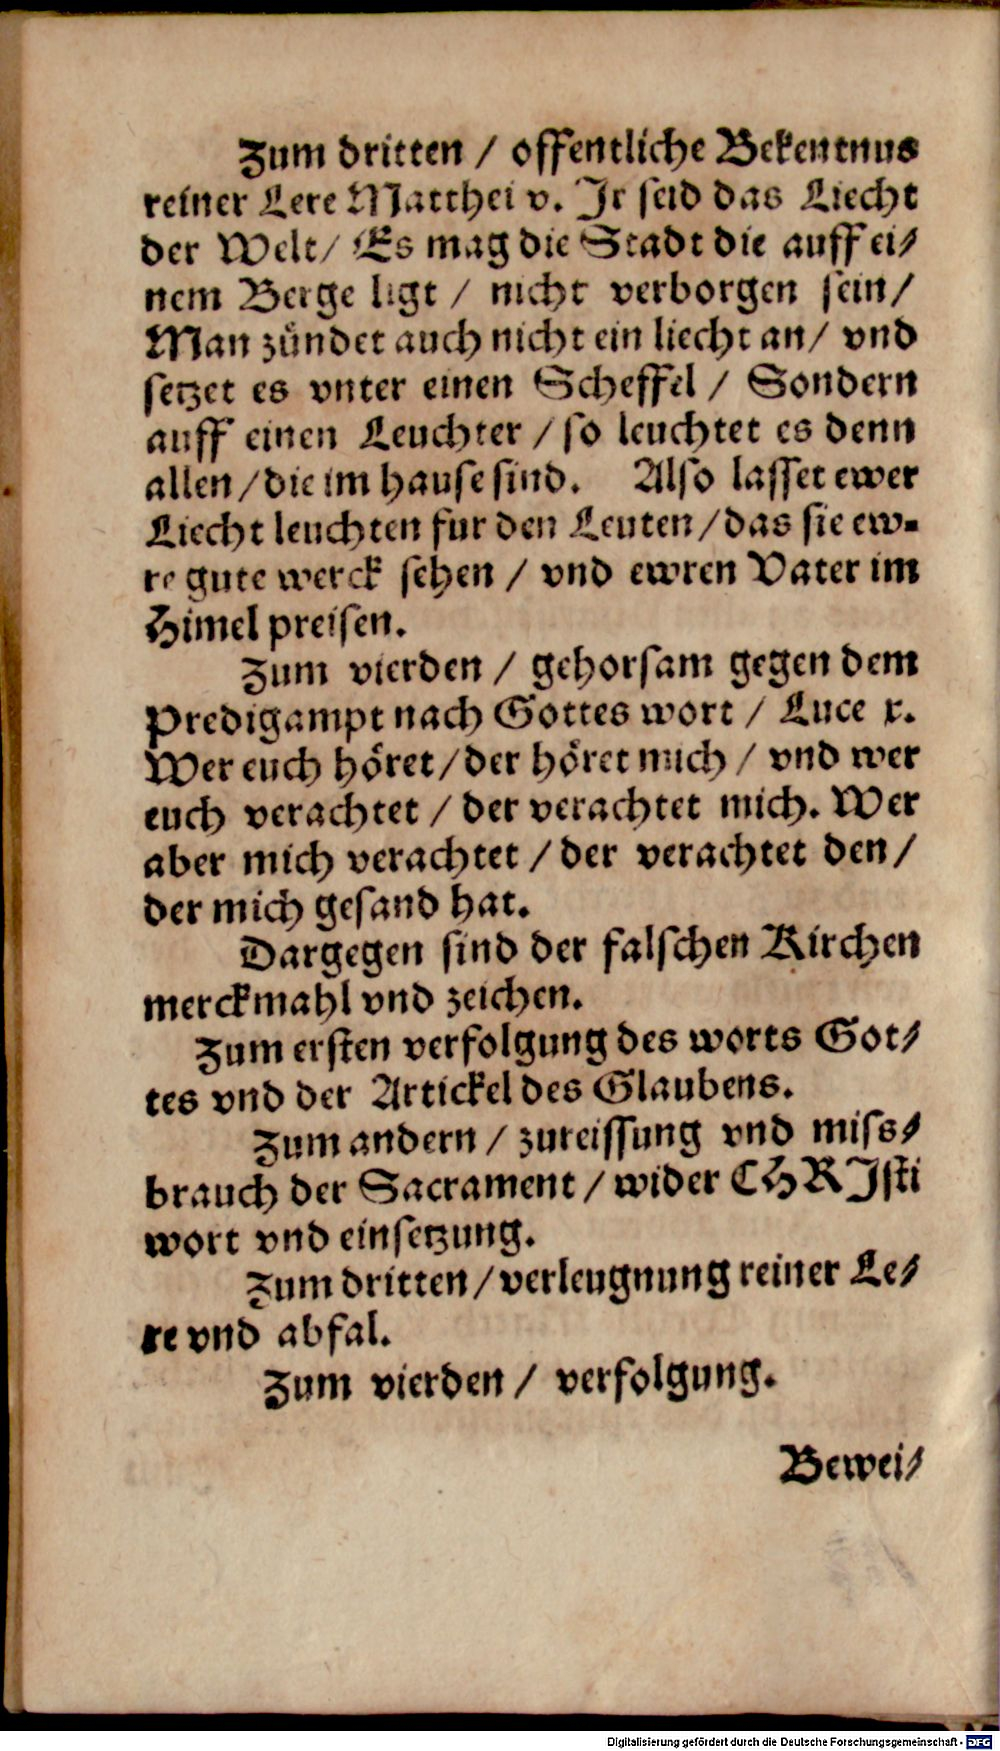 Zum dritten / offentliche Bekentnus
reiner Lere Matthei v. Jr seid das Liecht
der Welt / Es mag die Stadt die auff ei⸗
nem Berge ligt / nicht verborgen sein /
Man zündet auch nicht ein liecht an / vnd
setzet es vnter einen Scheffel / Sondern
auff einen Leuchter / so leuchtet es denn
allen / die im hause sind. Also lasset ewer
Liecht leuchten fur den Leuten / das sie ew⸗
re gute werck sehen / vnd ewren Vater im
Himel preisen.
Zum vierden / gehorsam gegen dem
Predigampt nach Gottes wort / Luce x.
Wer euch höret / der höret mich / vnd wer
euch verachtet / der verachtet mich. Wer
aber mich verachtet / der verachtet den /
der mich gesand hat.
Dargegen sind der falschen Kirchen
merckmahl vnd zeichen.
Zum ersten verfolgung des worts Got⸗
tes vnd der Artickel des Glaubens.
Zum andern / zureissung vnd miss⸗
brauch der Sacrament / wider CHRJsti
wort vnd einsetzung.
Zum dritten / verleugnung reiner Le⸗
re vnd abfal.
Zum vierden / verfolgung.
Bewei⸗
Digitalisierung gefördert durch die Deutsche Forschungsgemeinschaft - DFG